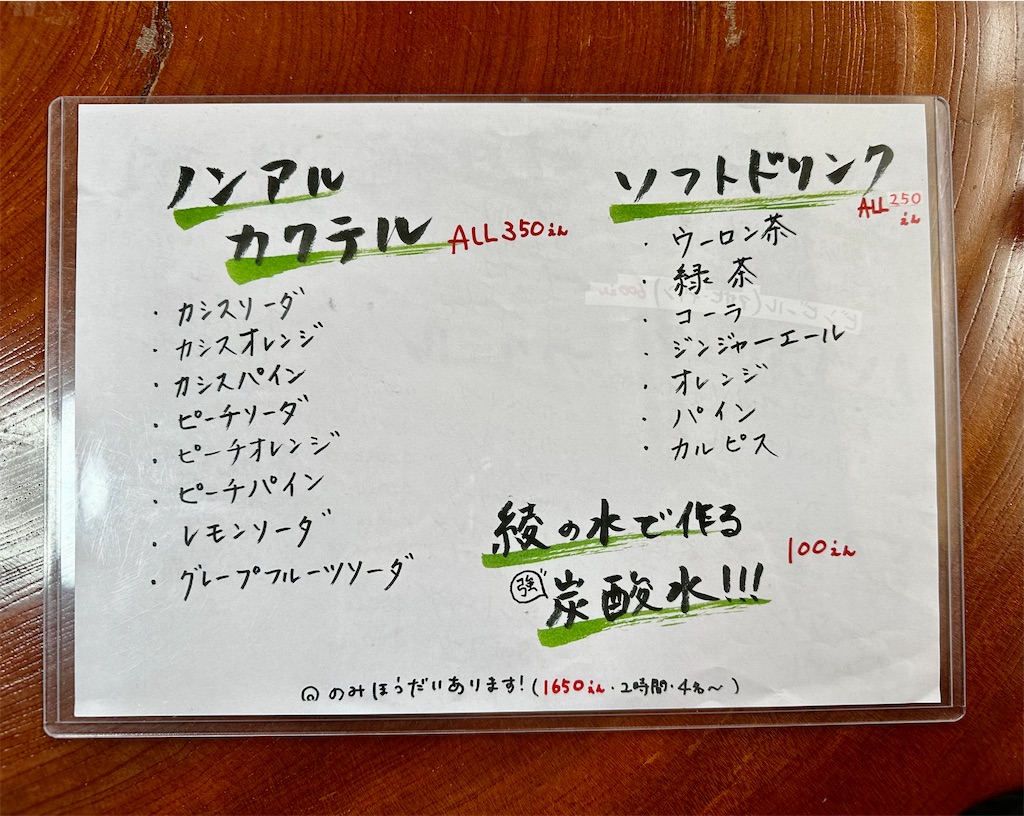 ノンアル
カクテル ALL 350えん
・カシスソーダ
・カシスオレンジ
・カシスパイン
・ピーチソーダ
・ピーチオレンジ
・ピーチパイン
・レモンソーダ
・グレープフルーツソーダ
ソフトドリンク
ALL 250えん
・ウーロン茶
・緑茶
・コーラ
・ジンジャーエール
・オレンジ
・パイン
・カルピス
綾の水で作る
強 炭酸水!!! 100えん
のみほうだいあります!(1650えん・2時間・4名〜)